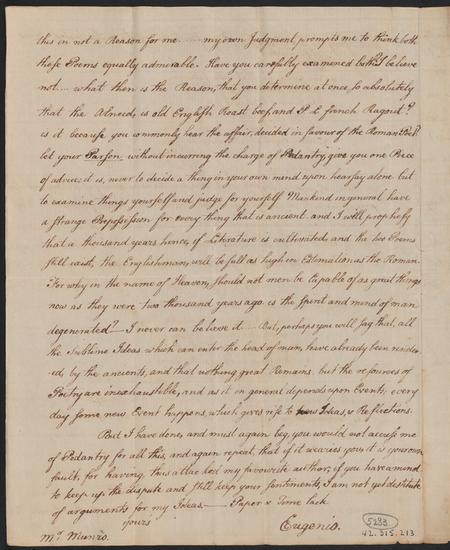 this is not a Reason for me ..... my own Judgment prompts me to think both
these Poems equally admirable. Have you carefully examened both? I believe
not .... what then is the Reason, that you determine at once, so absolutely
that the Almeid, is old English Roast beef, and P L french Ragout?
is it because you commonly hear the affair, decided in favour of the Roman Poet?
let your Parson, without incurring the charge of Pedantry, give you one Piece
of advice; it is, never to decide a thing in your own mind upon hearsay alone but
to examine things yourself and judge for yourself Mankind in general have
a strange Prepossession for every thing that is ancient. and I will prophesy
that a thousand years hence, if Literature is cultivated, and the two Poems
still exist, the Englishman, will be full as high in Estimation as the Roman.
For why in the name of Heaven, should not men be Capable of as great things
now as they were two thousand years ago. is the Spirit and mind of man
degenerated? — I never can believe it — But, perhaps you will say that, all
the Sublime Ideas which can enter the head of man, have already been render-
ed, by the ancients, and that nothing great Remains. but the resources of
Poetry are inexhaustible, and as it in general depends upon Events; every
day some new Event happens, which gives rise to new Ideas, & Reflections.
But I have done, and must again beg, you would not accuse me
of Pedantry for all this, and again repeat, that if it wearies you it is your own
fault, for having thus attacked my favourite author; if you have a mind
to keep up the dispute and still keep your sentiments, I am not yet destitute
of arguments for my Ideas — Paper & Time lack
yours
Eugenio.
Mr. Munro.
5233
42.315.213